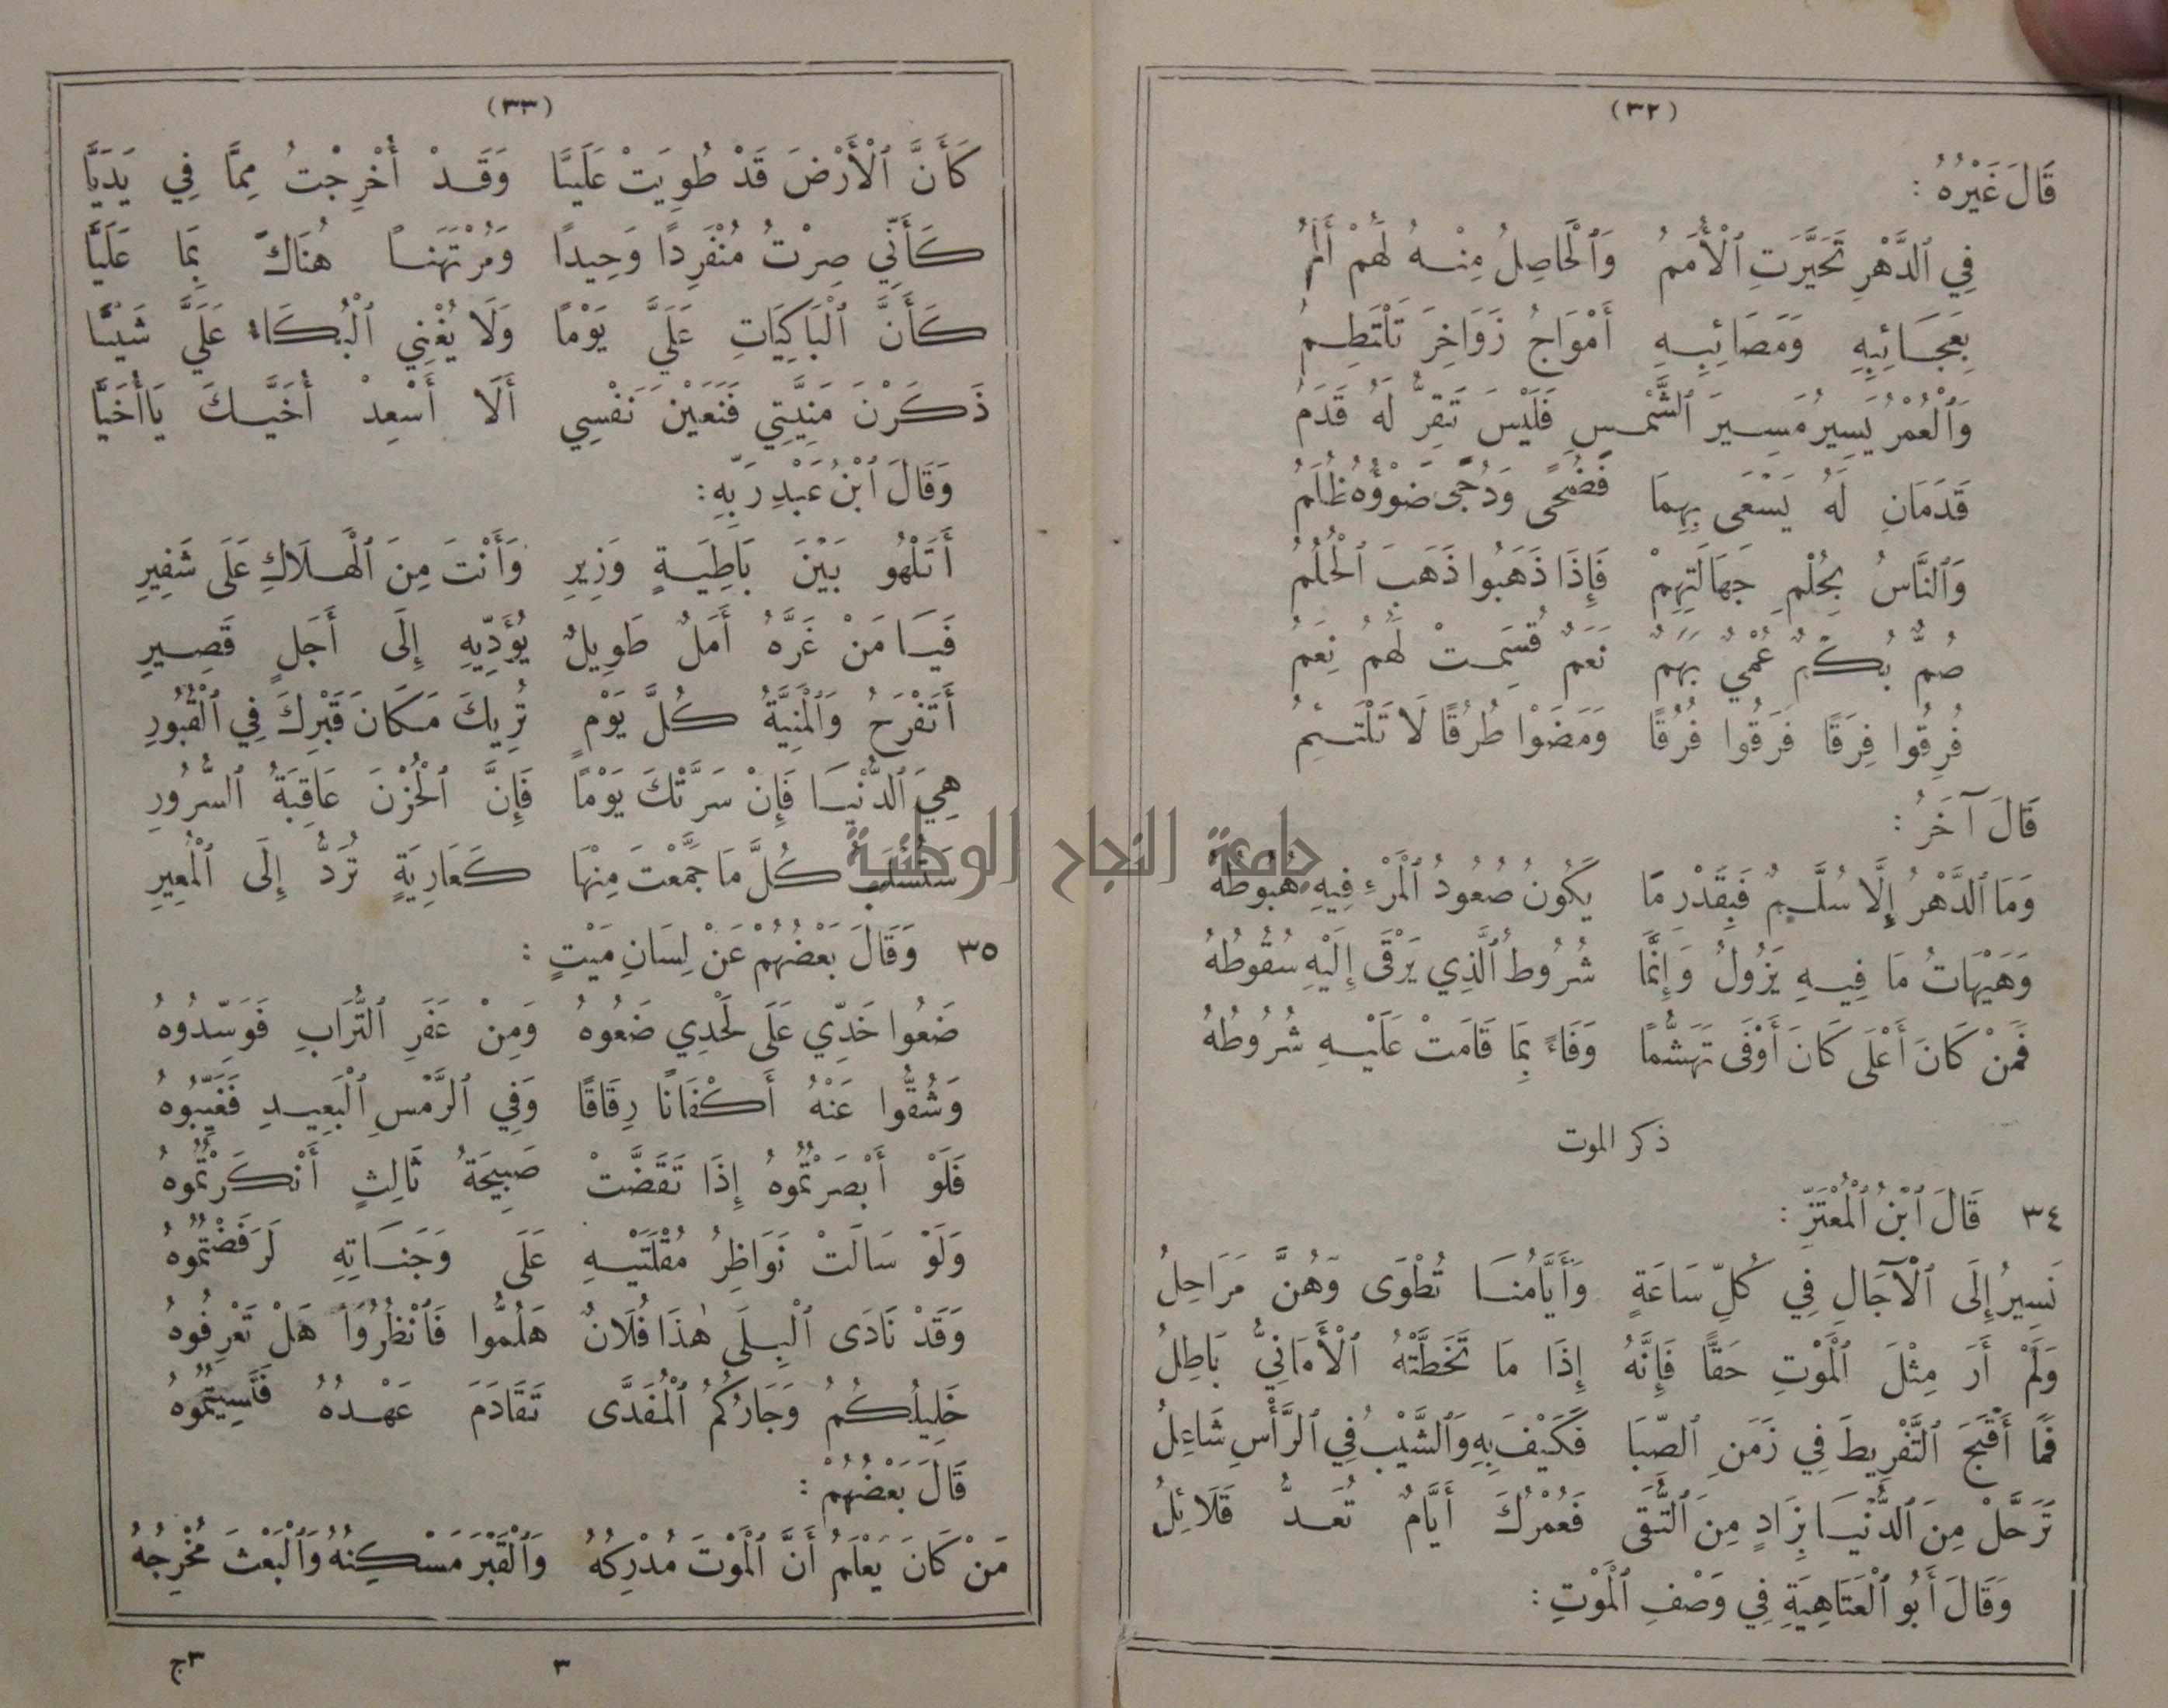 (٣٢)
قَالَ غَيْرُهُ :
فِي ٱلدَّهْرِ تَحَيَّرَتِ ٱلْأُمَمُ وَٱلْحَاصِلُ مِنْهُ لَهُمْ أَلَمُ
بِعَجَائِبِهِ وَمَصَائِبِهِ أَمْوَاجُ زَوَاخِرَ تَلْتَطِمُ
وَٱلْعُمْرُ يَسِيرُ مَسِيرَ ٱلشَّمْسِ فَلَيْسَ تَقِرُّ لَهُ قَدَمُ
قَدَمَانِ لَهُ يَسْعَى بِهِمَا فَضُحًى وَدُجًى ضَوْؤُهُ ظُلَمُ
وَٱلنَّاسُ بِحُلْمِ جَهَالَتِهِمْ فَإِذَا ذَهَبُوا ذَهَبَ ٱلْحُلُمُ
صُمٌّ بُكْمٌ عُمْيٌ بَهَمٌ نَعَمٌ قُسِمَتْ لَهُمُ نِعَمُ
فُرِقُوا فِرَقًا فَرَقُوا فُرُقًا وَمَضَوْا طُرُقًا لَا تَلْتَئِمُ
قَالَ آخَرُ :
وَمَا ٱلدَّهْرُ إِلَّا سُلَّمٌ فَبِقَدْرِ مَا يَكُونُ صُعُودُ ٱلْمَرْءِ فِيهِ هُبُوطُهُ
وَهَيْهَاتُ مَا فِيهِ يَزُولُ وَإِنَّمَا شُرُوطُ ٱلَّذِي يَرْقَى إِلَيْهِ سُقُوطُهُ
فَمَنْ كَانَ أَعْلَى كَانَ أَوْفَى تَهَشُّمًا وَفَاءً بِمَا قَامَتْ عَلَيْهِ شُرُوطُهُ
ذكر الموت
٣٤ قَالَ ٱبْنُ ٱلْمُعْتَزِّ :
نَسِيرُ إِلَى ٱلْآجَالِ فِي كُلِّ سَاعَةٍ وَأَيَّامُنَا تُطْوَى وَهُنَّ مَرَاحِلُ
وَلَمْ أَرَ مِثْلَ ٱلْمَوْتِ حَقًّا فَإِنَّهُ إِذَا مَا تَخَطَّتْهُ ٱلْأَمَانِيُّ بَاطِلُ
فَمَا أَقْبَحَ ٱلتَّفْرِيطَ فِي زَمَنِ ٱلصِّبَا فَكَيْفَ بِهِ وَٱلشَّيْبُ فِي ٱلرَّأْسِ شَاعِلُ
تَرَحَّلْ مِنَ ٱلدُّنْيَا بِزَادٍ مِنَ ٱلتُّقَى فَعُمْرُكَ أَيَّامٌ تُعَدُّ قَلَائِلُ
وَقَالَ أَبُو ٱلْعَتَاهِيَةِ فِي وَصْفِ ٱلْمَوْتِ :
(٣٣)
كَأَنَّ ٱلْأَرْضَ قَدْ طُوِيَتْ عَلَيَّا وَقَدْ أُخْرِجْتُ مِمَّا فِي يَدَيَّا
كَأَنِّي صِرْتُ مُنْفَرِدًا وَحِيدًا وَمُرْتَهَنًا هُنَاكَ بِمَا عَلَيَّا
كَأَنَّ ٱلْبَاكِيَاتِ عَلَيَّ يَوْمًا وَلَا يُغْنِي ٱلْبُكَاءُ عَلَيَّ شَيْئًا
ذَكَرْنَ مَنِيَّتِي فَنَعَيْنَ نَفْسِي أَلَا أَسْعِدْ أُخَيَّكَ يَا أُخَيَّا
وَقَالَ ٱبْنُ عَبْدِ رَبِّهِ :
أَتَلْهُو بَيْنَ بَاطِيَةٍ وَزِيرِ وَأَنْتَ مِنَ ٱلْهَلَاكِ عَلَى شَفِيرِ
فَيَا مَنْ غَرَّهُ أَمَلٌ طَوِيلٌ يُؤَدِّيهِ إِلَى أَجَلٍ قَصِيرِ
أَتَفْرَحُ وَٱلْمَنِيَّةُ كُلَّ يَوْمٍ تُرِيكَ مَكَانَ قَبْرِكَ فِي ٱلْقُبُورِ
هِيَ ٱلدُّنْيَا فَإِنْ سَرَّتْكَ يَوْمًا فَإِنَّ ٱلْحُزْنَ عَاقِبَةُ ٱلسُّرُورِ
سَتُسْلَبُ كُلَّ مَا جَمَّعْتَ مِنْهَا كَعَارِيَةٍ تُرَدُّ إِلَى ٱلْمُعِيرِ
٣٥ وَقَالَ بَعْضُهُمْ عَنْ لِسَانِ مَيْتٍ :
ضَعُوا خَدِّي عَلَى لَحْدِي ضَعُوهُ وَمِنْ عَفَرِ ٱلتُّرَابِ فَوَسِّدُوهُ
وَشُقُّوا عَنْهُ أَكْفَانًا رِقَاقًا وَفِي ٱلرَّمْسِ ٱلْبَعِيدِ فَغَيِّبُوهُ
فَلَوْ أَبْصَرْتُمُوهُ إِذَا تَقَضَّتْ صَبِيحَةُ ثَالِثٍ أَنْكَرْتُمُوهُ
وَلَوْ سَالَتْ نَوَاظِرُ مُقْلَتَيْهِ عَلَى وَجَنَاتِهِ لَرَفَضْتُمُوهُ
وَقَدْ نَادَى ٱلْبِلَى هٰذَا فُلَانٌ هَلُمُّوا فَٱنْظُرُوا هَلْ تَعْرِفُوهُ
خَلِيلُكُمُ وَجَارُكُمُ ٱلْمُفَدَّى تَقَادَمَ عَهْدُهُ فَنَسِيتُمُوهُ
قَالَ بَعْضُهُمْ :
مَنْ كَانَ يَعْلَمُ أَنَّ ٱلْمَوْتَ مُدْرِكُهُ وَٱلْقَبْرَ مَسْكِنُهُ وَٱلْبَعْثَ مُخْرِجُهُ
٣ ج٣
جامعة النجاح الوطنية